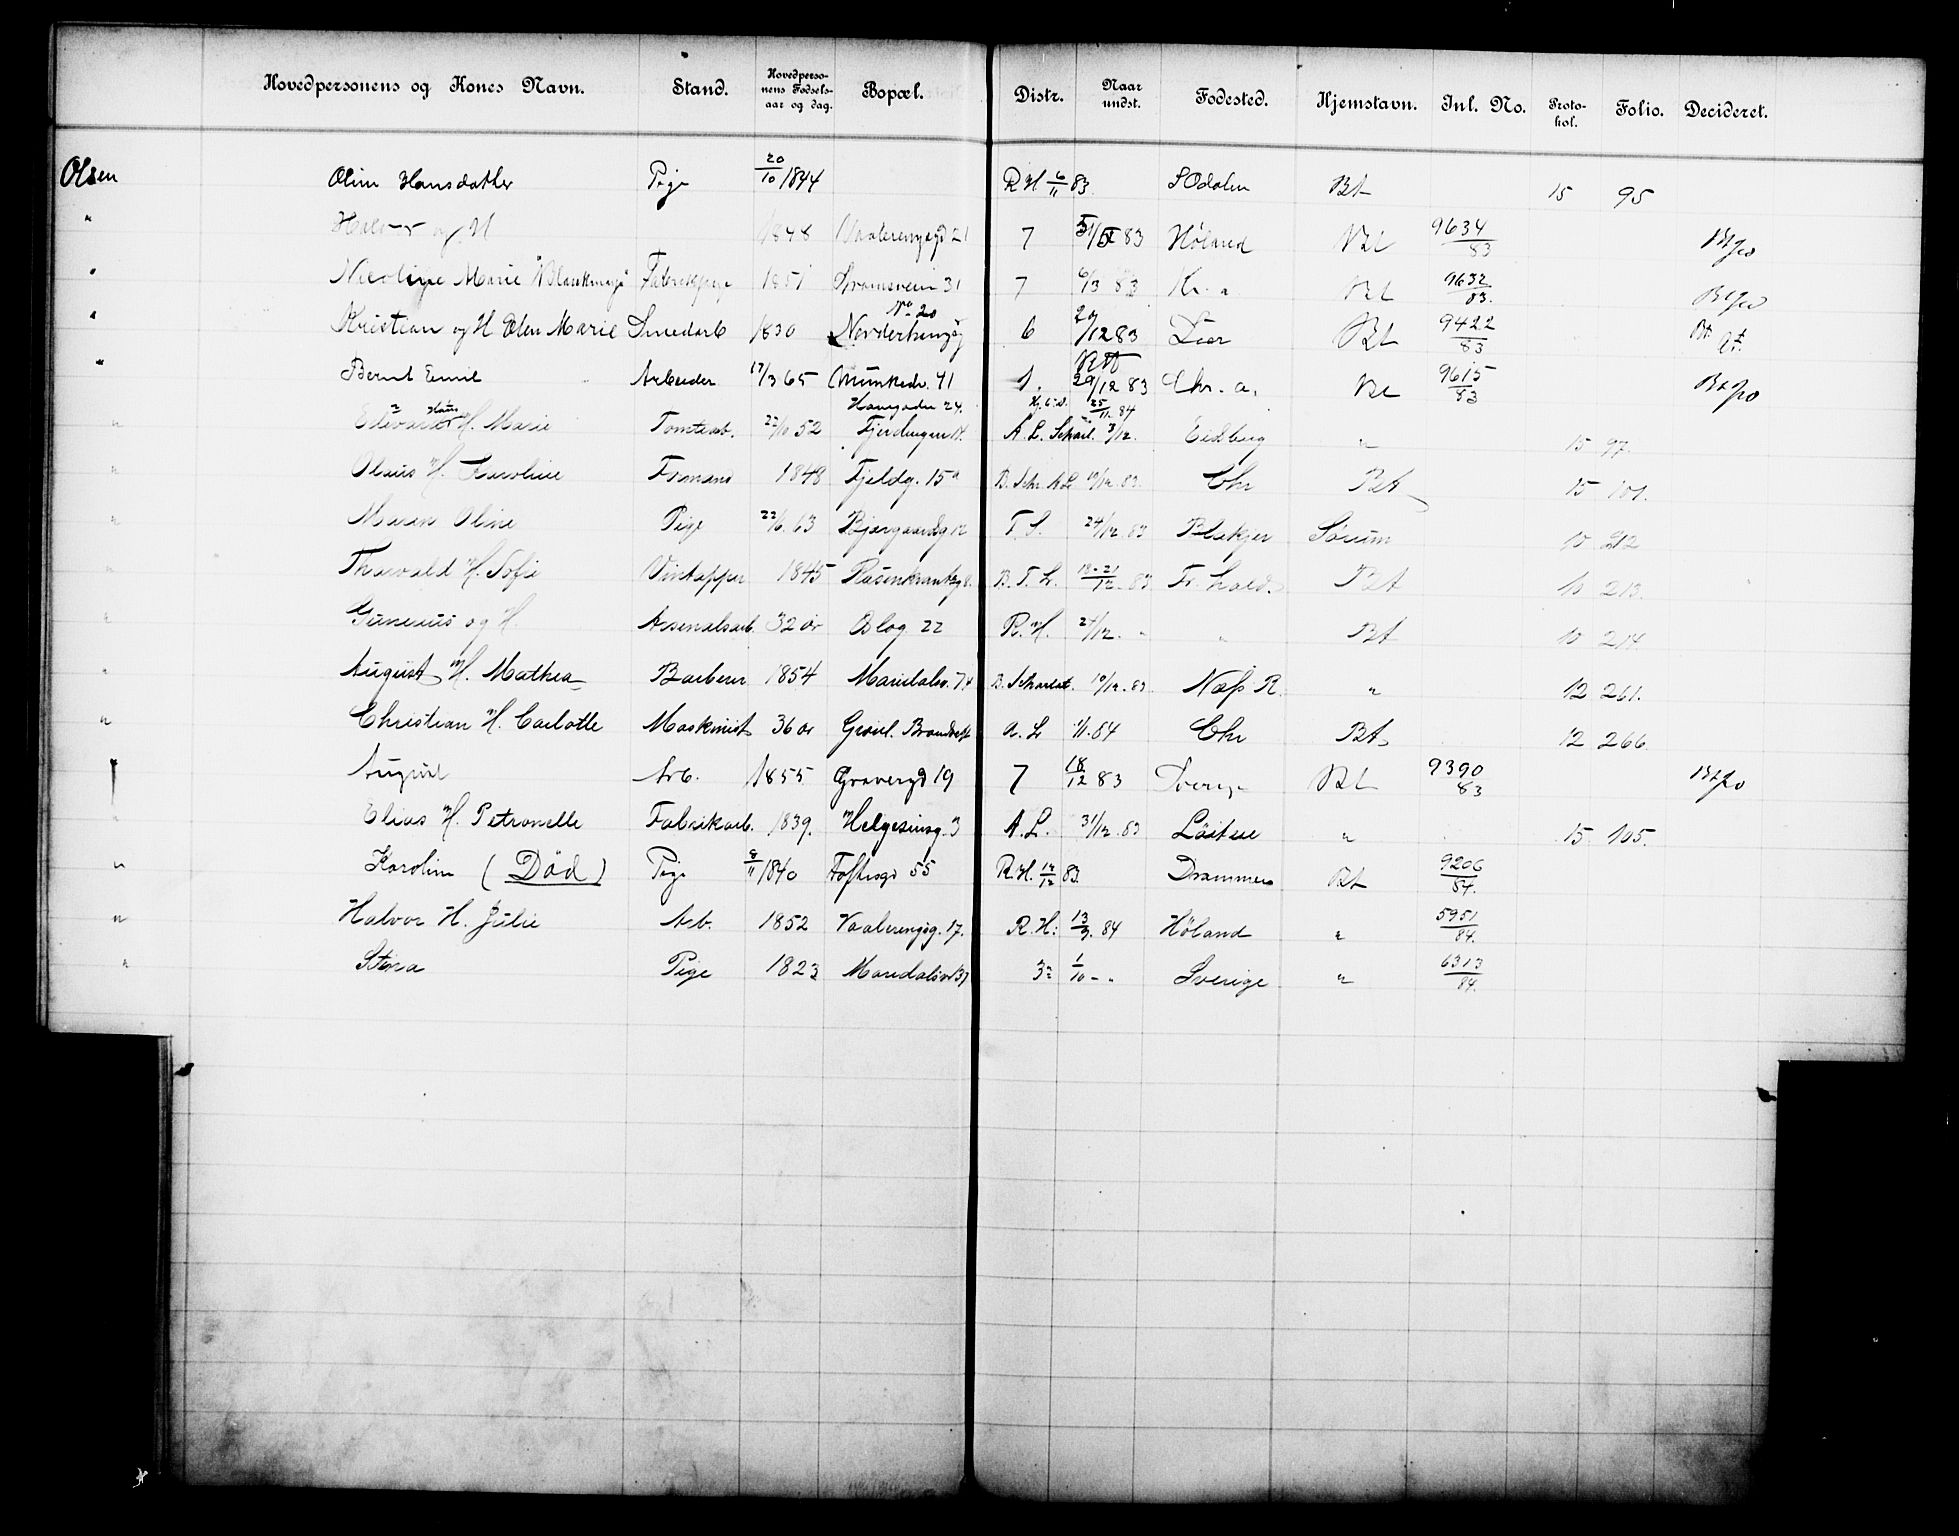 Hovedpersonens og Kones Navn. Stand. Hovedpersonens Fødselsaar og dag. Bopæl. Distr. Naar undst. Fødested. Hjemstavn. Inl. No. Protokol. Folio. Decideret.
Olsen Oline Hansdatter Pige 20/10 1844 R H 6/11 83 S Odalen Bt 15 95
" 1848 Vaalerenggd 21 7 83 Høland Bt 9634/83
" Marie Fabrikpige 1851 31 7 6/13 83 Kr. a 9632/83.
" Kristian og H Olen Marie Smedarb 1830 No 20 6 29/12 83 Lier Bt 9422/83
" Bernt Emil Arbeider 17/3 65 Munkedv. 41 1. 29/12 83 Chr. a. 9615/83
" Edvard H. Marie Tomtearb. 22/10 52 Havegaden 24. Fjerdingen 14. A. L. 25/11. 84 3/12. Eidsberg " 15 97.
" Olaus m H. Karoline Formand 1848 Fjeldg. 15a 10/12. 83. Chr Bt 15 101.
" Maren Oline Pige 22/6. 63 Bjergaardsg 12 T. S. 24/12. 83 Blakjer Sørum 10 212
" Thorvald m H. Sofie Vintapper 1845 Rosenkrantzg 8. B. T. L. 18-21/12. 83 Fr. hald. Bt 10 213.
" Gunerius og H. Arsenalsarb. 32 år Olog. 22 R. H. 24/12. " " Bt 10 214.
" August m H. Mathea Barberer 1854 Maridalsv. 74 10/12. 83. Næs R. " 12 261.
" Christian m H. Carlotte Maskinist 36 år Grønl. Brandvagt A. L 1/1. 84 Chr Bt 12 266.
" August Arb. 1855 Gravergd 19 7 18/12 83 Sverige Bt 9390/83
" Elias m H. Petronelle Fabrikarb. 1839. Helgesensg. 3 A. L. 31/12. 83 Löiten " 15 105.
" Karoline (Död) Pige 8/11 1840 Toftesgd 55 R. H. 12/12 83. Drammen Bt 9206/84.
" Halvor H. Julie Arb. 1852 Vaalerengsg. 17. R. H: 13/9. 84 Höland " 5951/84.
" Stina Pige 1823 Maridalsv 37 3 1/10 - " Sverige " 6313/84.